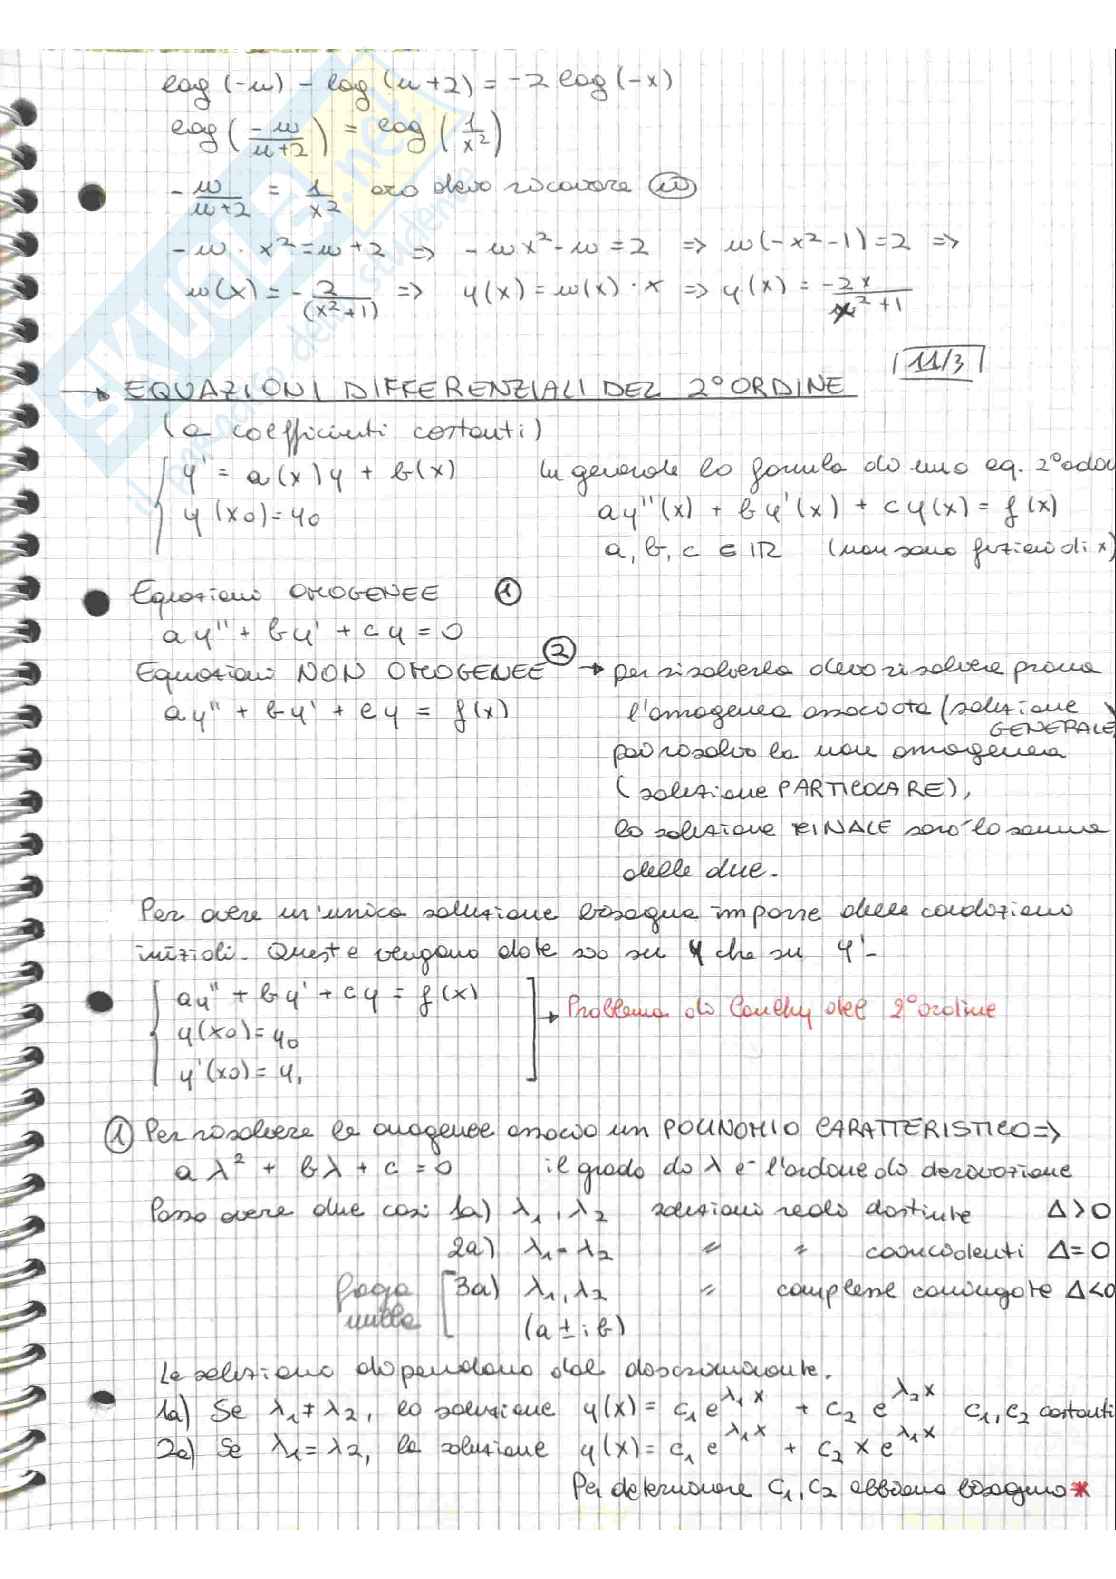 log(-u) - log(u+2) = -2 log(-x)
log(-u/(u+2)) = log(1/x²)
-u/(u+2) = 1/x² ora devo ricavare u
-u · x² = u+2 => -ux² - u = 2 => u(-x²-1) = 2 =>
u(x) = -2/(x²+1) => y(x) = u(x) · x => y(x) = -2x/(x²+1)
11/3
→ EQUAZIONI DIFFERENZIALI DEL 2° ORDINE
(a coefficienti costanti)
{ y' = a(x)y + b(x)
y(x0) = y0
In generale la formula di una eq. 2° ordor
ay''(x) + by'(x) + cy(x) = f(x)
a, b, c ∈ IR (non sono funzioni di x)
Equazioni OMOGENEE ①
ay'' + by' + cy = 0
Equazioni NON OMOGENEE ②
ay'' + by' + cy = f(x)
→ per risolverla devo risolvere prima
l'omogenea associata (soluzione GENERALE)
poi risolvo la non omogenea
(soluzione PARTICOLARE),
la soluzione FINALE sarà la somma
delle due.
Per avere un'unica soluzione bisogna imporre delle condizioni
iniziali. Queste vengono date sia su y che su y'-
{ ay'' + by' + cy = f(x)
y(x0) = y0
y'(x0) = y1
] → Problema di Cauchy del 2° ordine
① Per risolvere le omogenee associo un POLINOMIO CARATTERISTICO =>
aλ² + bλ + c = 0 il grado di λ è l'ordine di derivazione
Posso avere due casi 1a) λ1, λ2 soluzioni reali distinte Δ>0
2a) λ1=λ2 " " coincidenti Δ=0
3a) λ1, λ2 " complesse coniugate Δ<0
(a ± ib)
Le soluzioni dipendono dal discriminante.
1a) Se λ1≠λ2, la soluzione y(x) = c1 e^λ1x + c2 e^λ2x c1, c2 costanti
2a) Se λ1=λ2, la soluzione y(x) = c1 e^λ1x + c2 x e^λ1x
Per determinare c1, c2 abbiamo bisogno *
SKUOLA.net
il paradiso dello studente